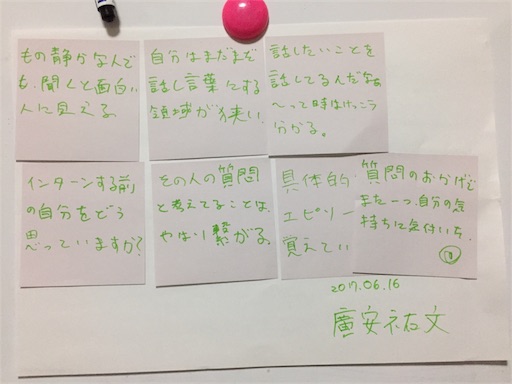 もの静かなんで
も、聞くと面白い
人に見える。
自分はまだまだ
話し言葉にする
領域が狭い
話したいことを
話してるんだなぁ
〜って時はけっこう
分かる。
インターンする前
の自分をどう
思っていますか?
その人の質問
と考えてることは、
やはり繋がる。
具体的
エピソー
覚えてい
質問のおかげで
また一つ、自分の気
持ちに気付いた。
2017.06.16
廣安祐文